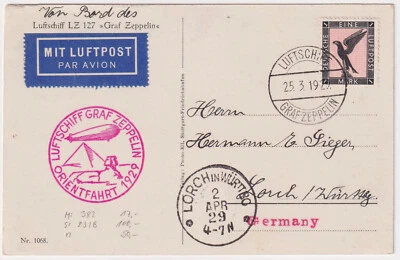 Von Bord des
Luftschiff LZ 127 »Graf Zeppelin«
MIT LUFTPOST
PAR AVION
DEUTSCHE EINE LUFTPOST
MARK
LUFTSCHIFF
25.3.1929
GRAF ZEPPELIN
LUFTSCHIFF GRAF ZEPPELIN
ORIENTFAHRT 1929
Herrn
Hermann E. Sieger.
Lorch / Württbg.
Germany
LORCH IN WÜRTTBG
2
APR
29
4-7N
Mi 383 17,-
Nr. 1068.